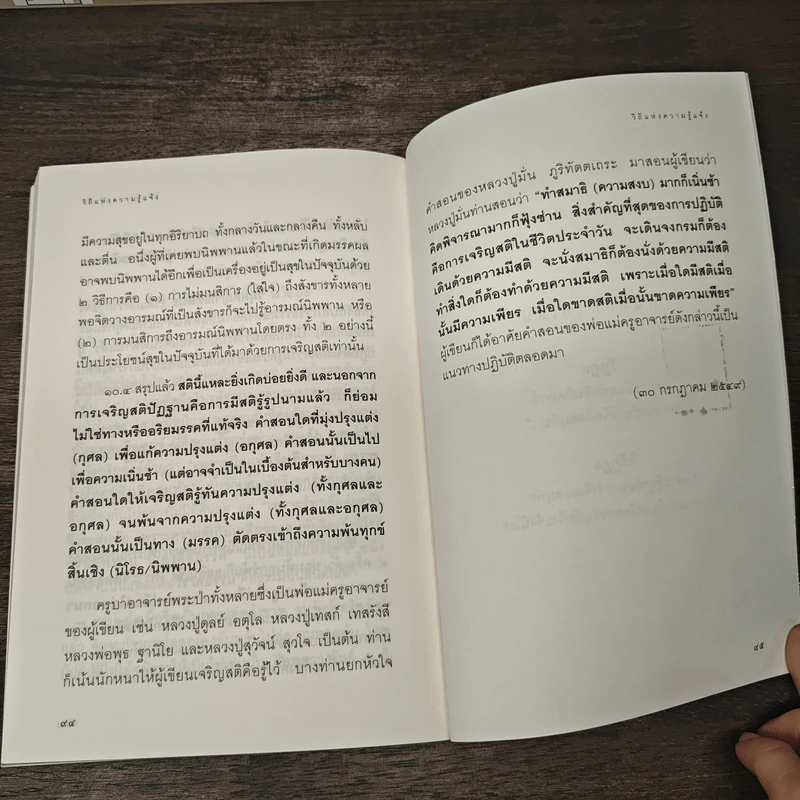 วิถีแห่งความรู้แจ้ง
มีความสุขอยู่ในทุกอิริยาบถ ทั้งกลางวันและกลางคืน ทั้งหลับ
และตื่น อนึ่งผู้ที่เคยพบนิพพานแล้วในขณะที่เกิดมรรคผล
อาจพบนิพพานได้อีกเพื่อเป็นเครื่องอยู่เป็นสุขในปัจจุบันด้วย
๒ วิธีการคือ (๑) การไม่มนสิการ (ใส่ใจ) ถึงสังขารทั้งหลาย
พอจิตวางอารมณ์ที่เป็นสังขารก็จะไปรู้อารมณ์นิพพาน หรือ
(๒) การมนสิการถึงอารมณ์นิพพานโดยตรง ทั้ง ๒ อย่างนี้
เป็นประโยชน์สุขในปัจจุบันที่ได้มาด้วยการเจริญสติเท่านั้น
๑๐.๔ สรุปแล้ว สตินี้แหละยิ่งเกิดบ่อยยิ่งดี และนอกจาก
การเจริญสติปัฏฐานคือการมีสติรู้รูปนามแล้ว ก็ย่อม
ไม่ใช่ทางหรืออริยมรรคที่แท้จริง คำสอนใดที่มุ่งปรุงแต่ง
(กุศล) เพื่อแก้ความปรุงแต่ง (อกุศล) คำสอนนั้นเป็นไป
เพื่อความเนิ่นช้า (แต่อาจจำเป็นในเบื้องต้นสำหรับบางคน)
คำสอนใดให้เจริญสติรู้ทันความปรุงแต่ง (ทั้งกุศลและ
อกุศล) จนพ้นจากความปรุงแต่ง (ทั้งกุศลและอกุศล)
คำสอนนั้นเป็นทาง (มรรค) ตัดตรงเข้าถึงความพ้นทุกข์
สิ้นเชิง (นิโรธ/นิพพาน)
ครูบาอาจารย์พระป่าทั้งหลายซึ่งเป็นพ่อแม่ครูอาจารย์
ของผู้เขียน เช่น หลวงปู่ดูลย์ อตุโล หลวงปู่เทสก์ เทสรังสี
หลวงพ่อพุธ ฐานิโย และหลวงปู่สุวัจน์ สุวโจ เป็นต้น ท่าน
ก็เน้นนักหนาให้ผู้เขียนเจริญสติคือรู้ไว้ บางท่านยกหัวใจ
๙๔
วิถีแห่งความรู้แจ้ง
คำสอนของหลวงปู่มั่น ภูริทัตตเถระ มาสอนผู้เขียนว่า
หลวงปู่มั่นท่านสอนว่า “ทำสมาธิ (ความสงบ) มากก็เนิ่นช้า
คิดพิจารณามากก็ฟุ้งซ่าน สิ่งสำคัญที่สุดของการปฏิบัติ
คือการเจริญสติในชีวิตประจำวัน จะเดินจงกรมก็ต้อง
เดินด้วยความมีสติ จะนั่งสมาธิก็ต้องนั่งด้วยความมีสติ
ทำสิ่งใดก็ต้องทำด้วยความมีสติ เพราะเมื่อใดมีสติเมื่อ
นั้นมีความเพียร เมื่อใดขาดสติเมื่อนั้นขาดความเพียร”
ผู้เขียนก็ได้อาศัยคำสอนของพ่อแม่ครูอาจารย์ดังกล่าวนี้เป็น
แนวทางปฏิบัติตลอดมา
(๓๐ กรกฎาคม ๒๕๔๙)
๙๕